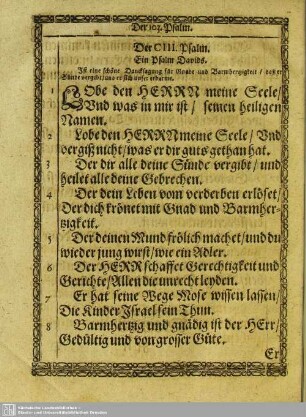 Der 103. Psalm.
Der CIII. Psalm.
Ein Psalm Davids.
Ist eine schöne Dancksagung für Gnade und Barmhertzigkeit / daß er
Sünde vergibt / uns er sich unser erbarme.
1 LObe den HERRN meine Seele /
Vnd was in mir ist / seinen heiligen
Namen.
2 Lobe den HERRN meine Seele / Vnd
vergiß nicht / was er dir guts gethan hat.
3 Der dir alle deine Sünde vergibt / und
heilet alle deine Gebrechen.
4 Der dein Leben vom verderben erlöset /
Der dich krönet mit Gnad und Barmher-
tzigkeit.
5 Der deinen Mund frölich machet / und du
wieder jung wirst / wie ein Adler.
6 Der HERR schaffet Gerechtigkeit und
Gerichte / Allen die unrecht leyden.
7 Er hat seine Wege Mose wissen lassen /
Die Kinder Israel sein Thun.
8 Barmhertzig und gnädig ist der HErr /
Gedültig und von grosser Güte.
Er